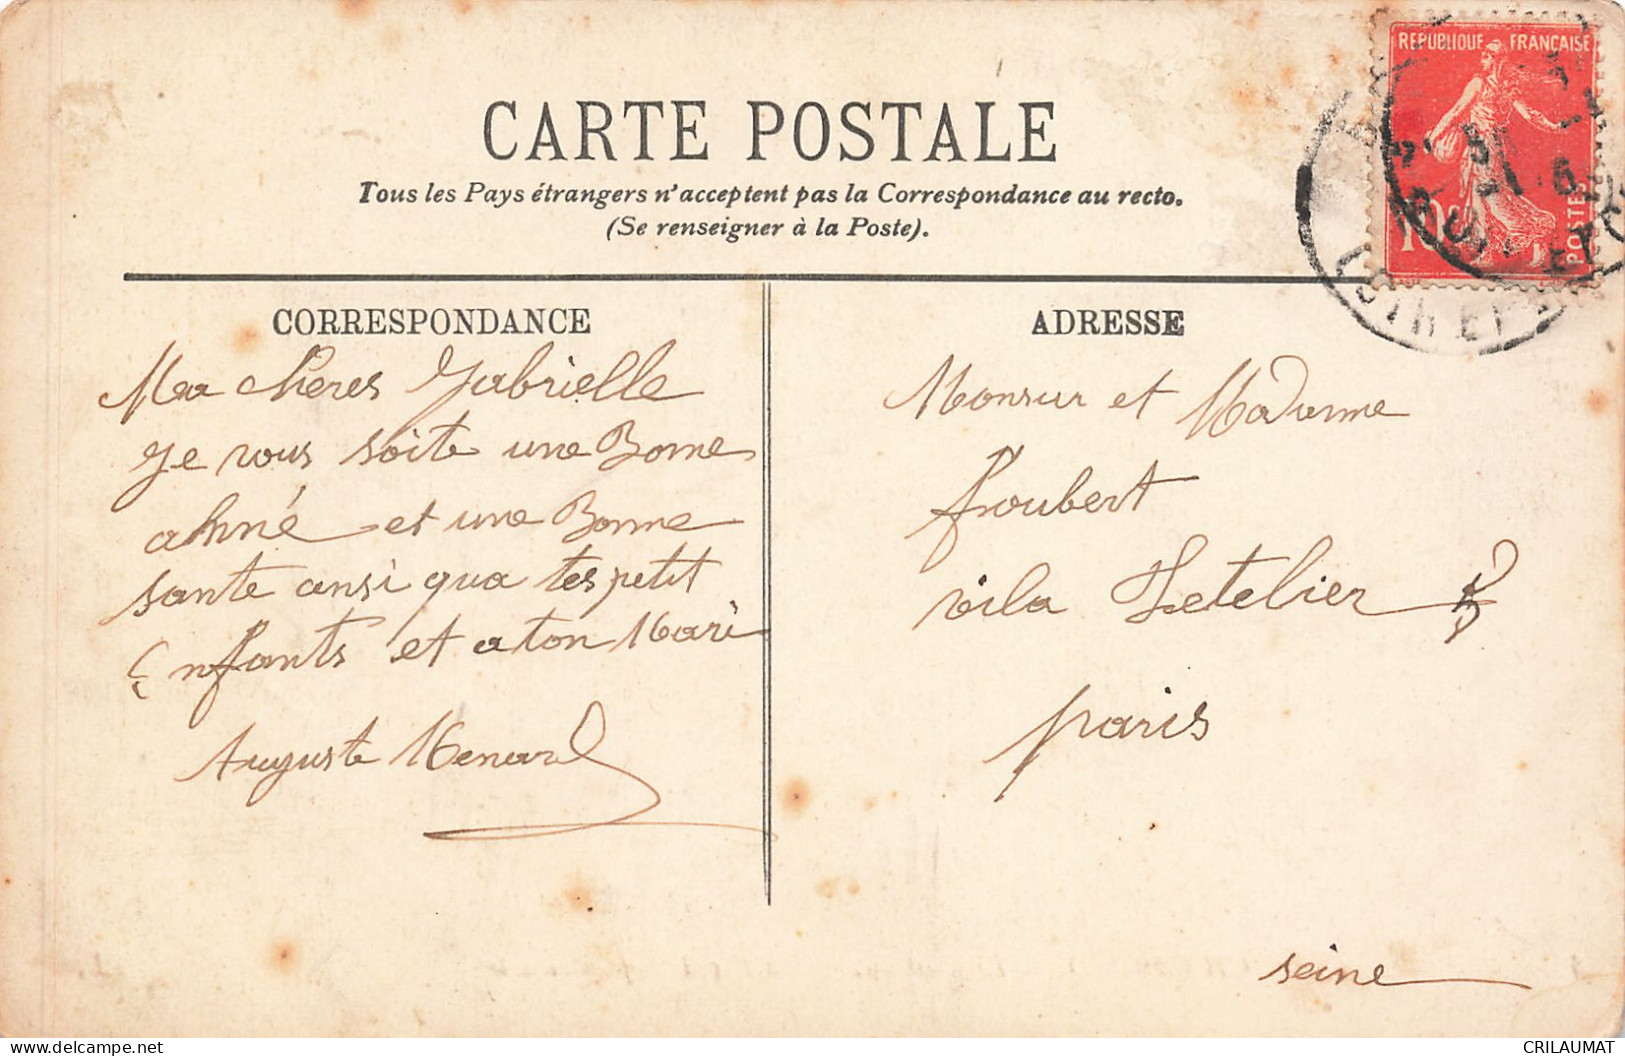 CARTE POSTALE
Tous les Pays étrangers n'acceptent pas la Correspondance au recto.
(Se renseigner à la Poste).
REPUBLIQUE FRANÇAISE
10
POSTES
LOIRET
CORRESPONDANCE
Ma cheres Gabrielle
Je vous soite une Bonne
ahné et une Bonne
sante ansi qua tes petit
Enfants et a ton Mari
Auguste Menard
ADRESSE
Monsur et Madame
Joubert
vila Letelier 5
paris
seine
delcampe.net
CRILAUMAT